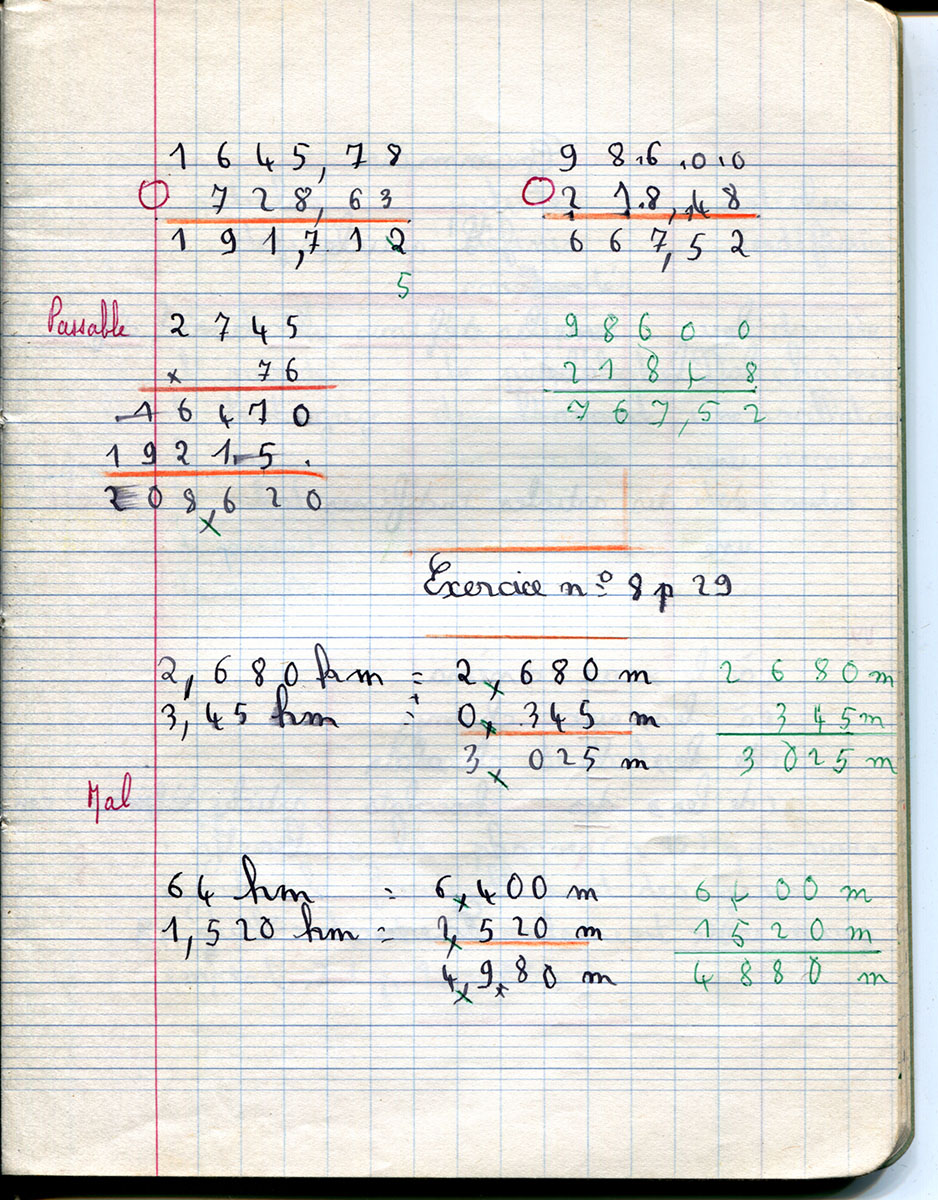 1 6 4 5, 7 8
7 2 8, 6 3
1 9 1, 7 1 2
5
9 8 6 0 0
2 1 8, 4 8
6 6 7, 5 2
Passable
2 7 4 5
x 7 6
1 6 4 7 0
1 9 2 1 5 .
2 0 8, 6 2 0
9 8 6 0 0
2 1 8 4 8
7 6 7, 5 2
Exercice n° 8 p 29
2, 6 8 0 km = 2, 6 8 0 m 2 6 8 0 m
3, 45 hm = 0, 345 m 3 4 5 m
3, 025 m 3 0 2 5 m
Mal
64 hm = 6, 400 m 6 4 0 0 m
1, 520 km = 1, 520 m 1 5 2 0 m
4, 9 80 m 4 8 8 0 m